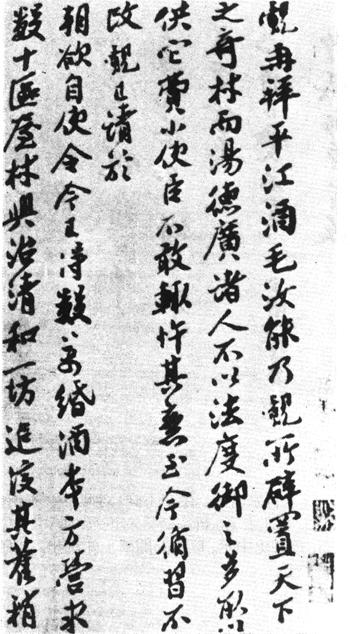 覿再拜平江酒毛汝能乃覿所辟置天下
之奇材而湯德廣諸人不以法度御之多
供它費小使臣不敢輒忤其意至今循習不
改覿已請於
朝欲自使令今得數萬緡酒本方營求
數十區屋材興治清和一坊追復其舊稍